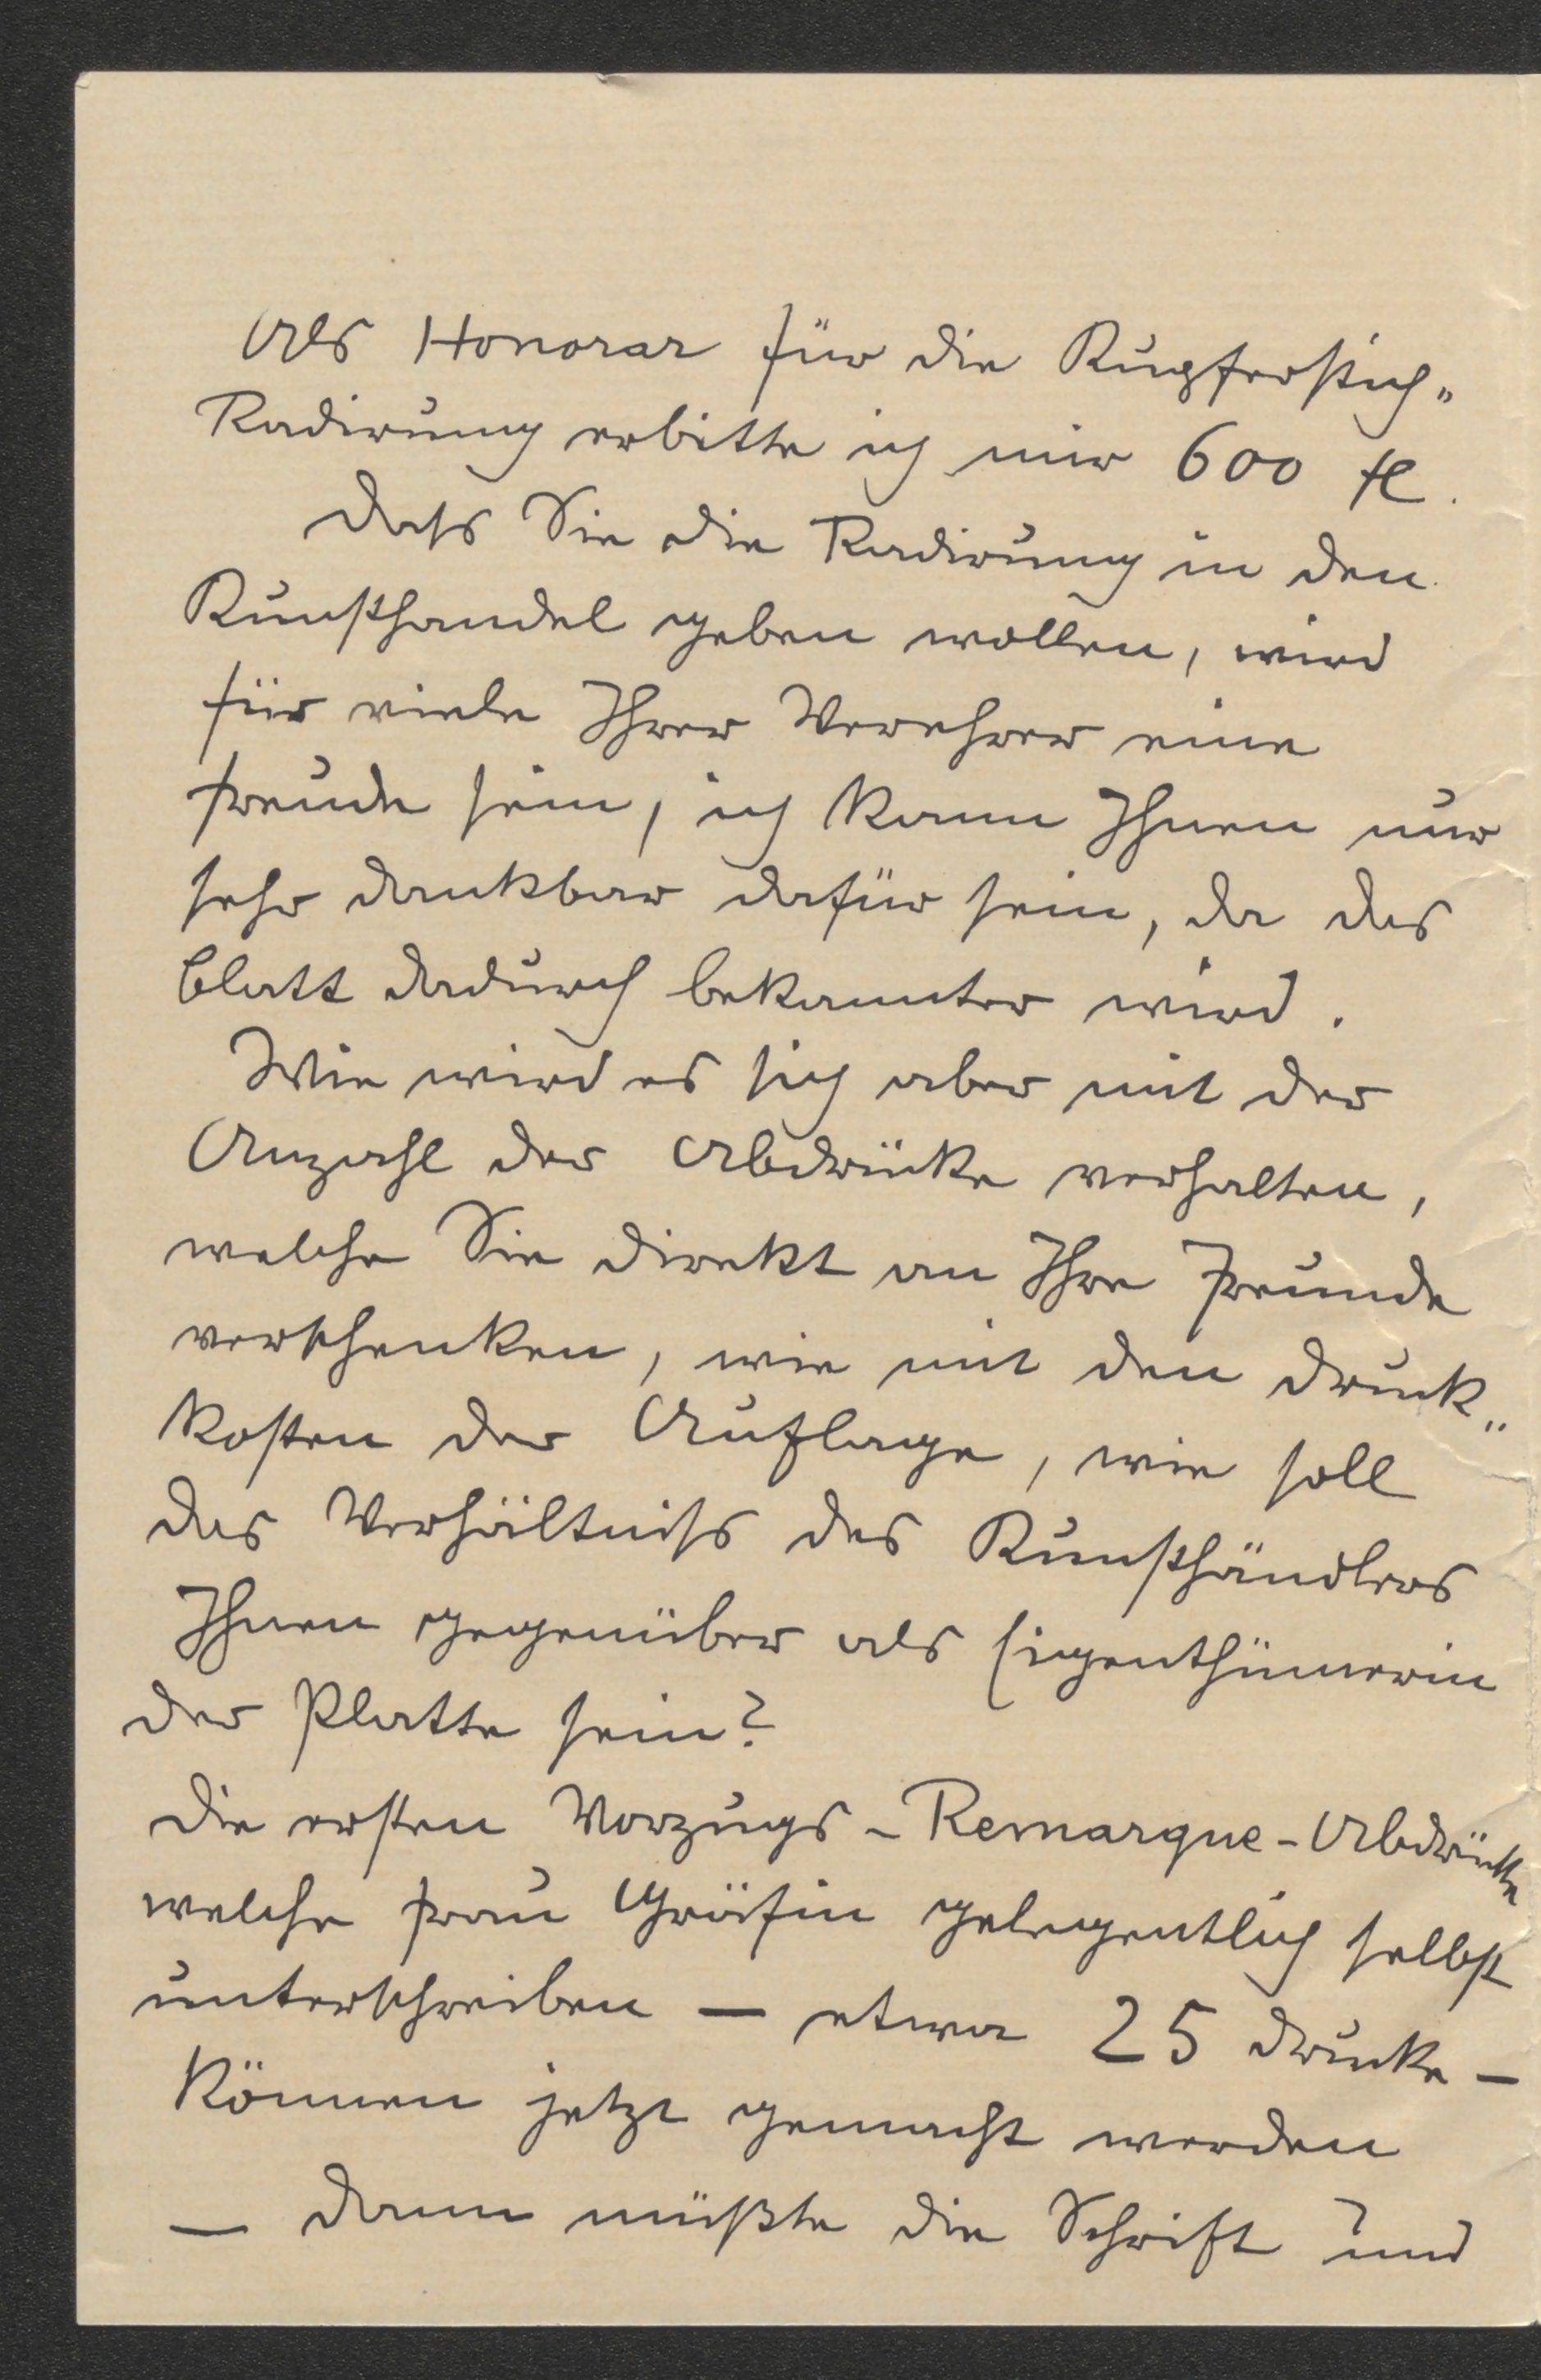 Als Honorar für die Kupferstich„
Radirung erbitte ich mir 600 fl.
Dass Sie die Radirung in den
Kunsthandel geben wollen, wird
für viele Ihrer Verehrer eine
Freude sein, ich kann Ihnen nur
sehr dankbar dafür sein, da das
Blatt dadurch bekannter wird.
Wie wird es sich aber mit der
Anzahl der Abdrücke verhalten,
welche Sie direkt an Ihre Freunde
verschenken, wie mit den Druck„
kosten der Auflage, wie soll
das Verhältniss des Kunsthändlers
Ihnen gegenüber als Eigenthümerin
der Platte sein?
Die ersten Vorzugs-Remarque-Abdrücke
welche Frau Gräfin gelegentlich selbst
unterschreiben — etwa 25 Drucke —
können jetzt gemacht werden
— dann müßte die Schrift und